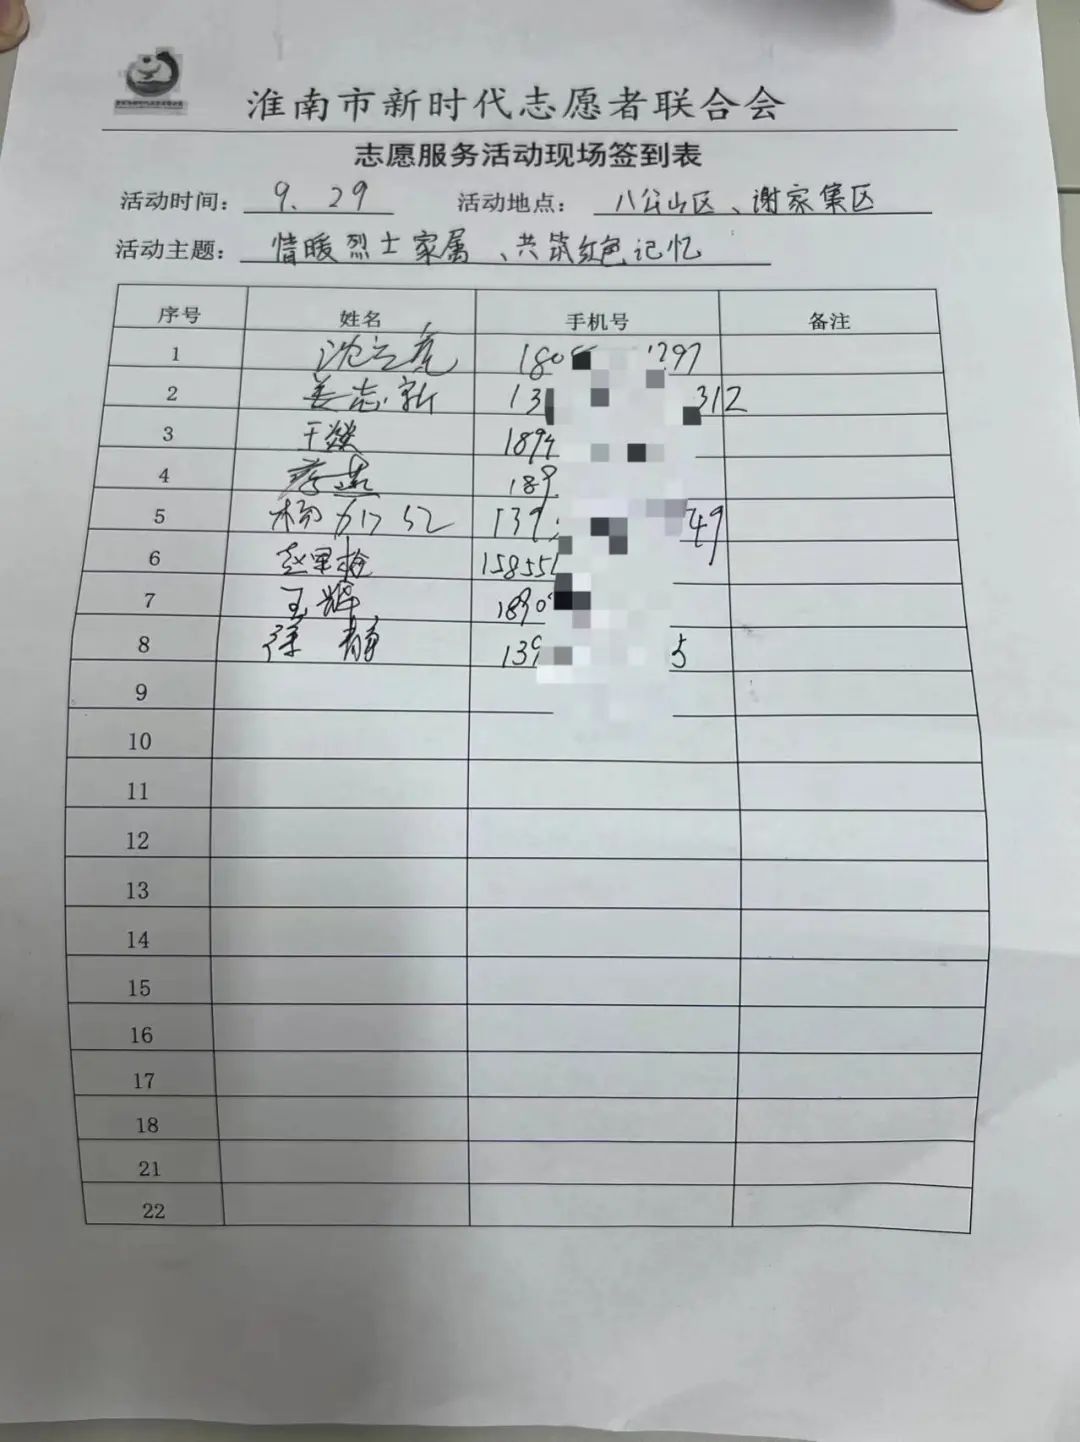 淮南市新时代志愿者联合会
志愿服务活动现场签到表
活动时间: 9.29 活动地点: 八公山区、谢家集区
活动主题: 情暖烈士家属、共筑红色记忆
序号 姓名 手机号 备注
1 沈之虎 180 297
2 姜志新 13 312
3 1894
4 189
5 杨 139 49
6 赵军 15855
7 王辉 1890
8 徐静 139 5
9
10
11
12
13
14
15
16
17
18
21
22